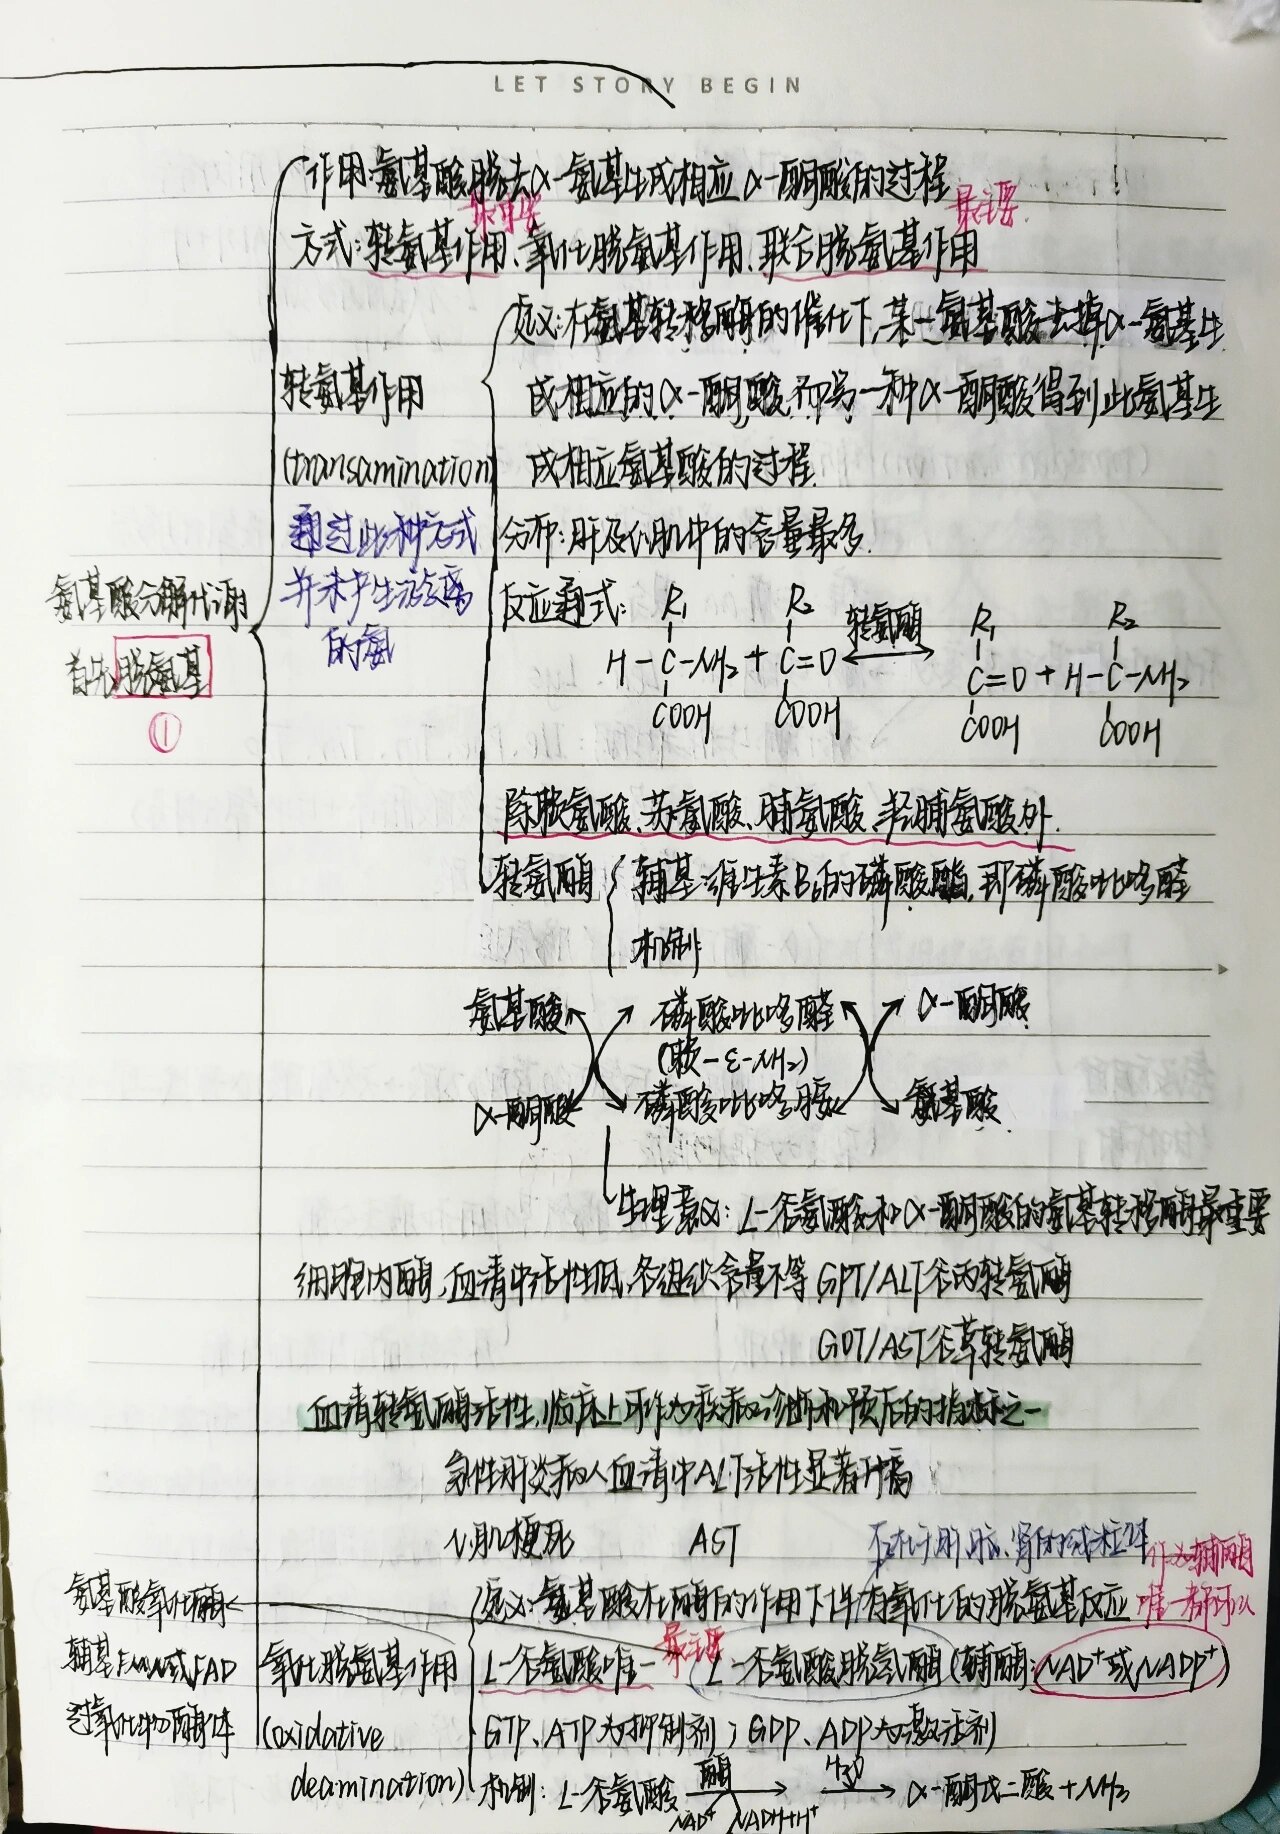 LET STORY BEGIN
作用:氨基酸脱去α-氨基生成相应α-酮酸的过程
最重要 最主要
方式:转氨基作用、氧化脱氨基作用、联合脱氨基作用
定义:在氨基转移酶的催化下,某一氨基酸去掉α-氨基生
转氨基作用 成相应的α-酮酸,而另一种α-酮酸得到此氨基生
(transamination) 成相应氨基酸的过程.
通过此种方式 分布:肝及心肌中的含量最多.
并未产生游离
的氨
氨基酸分解代谢
首先脱氨基
①
反应通式: R₁ R₂ 转氨酶 R₁ R₂
H-C-NH₂ + C=O ⟷ C=O + H-C-NH₂
COOH COOH COOH COOH
除赖氨酸、苏氨酸、脯氨酸、羟脯氨酸外.
转氨酶 辅基:维生素B₆的磷酸酯,即磷酸吡哆醛
机制
氨基酸 磷酸吡哆醛 α-酮酸
(赖-ε-NH₂)
α-酮酸 磷酸吡哆胺 氨基酸
生理意义:L-谷氨酸和α-酮酸的氨基转移酶最重要
细胞内酶,血清中活性低,各组织含量不等 GPT/ALT谷丙转氨酶
GOT/AST谷草转氨酶
血清转氨酶活性,临床上可作为疾病诊断和预后的指标之一
急性肝炎病人血清中ALT活性显著升高
心肌梗死 AST 存在于肝、脑、肾的线粒体
作为辅酶
氨基酸氧化酶 定义:氨基酸在酶的作用下伴有氧化的脱氨基反应 唯一都可以
最主要
辅基FMN或FAD 氧化脱氨基作用 L-谷氨酸唯一 L-谷氨酸脱氢酶(辅酶:NAD⁺或NADP⁺)
过氧化物酶体 (oxidative GTP、ATP为抑制剂;GDP、ADP为激活剂
deamination) 机制: L-谷氨酸 酶 NAD⁺ NADH+H⁺ → H₂O → α-酮戊二酸+NH₃